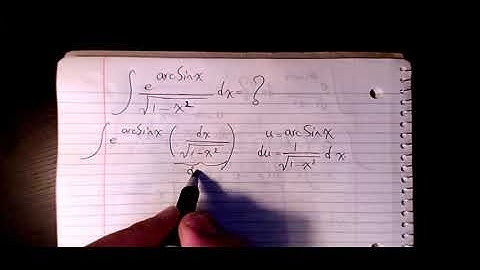 ∫ e^arcSinx / √1-x² dx = ?
∫ e^arcSinx ( dx / √1-x² ) u = arcSinx
du = 1 / √1-x² dx